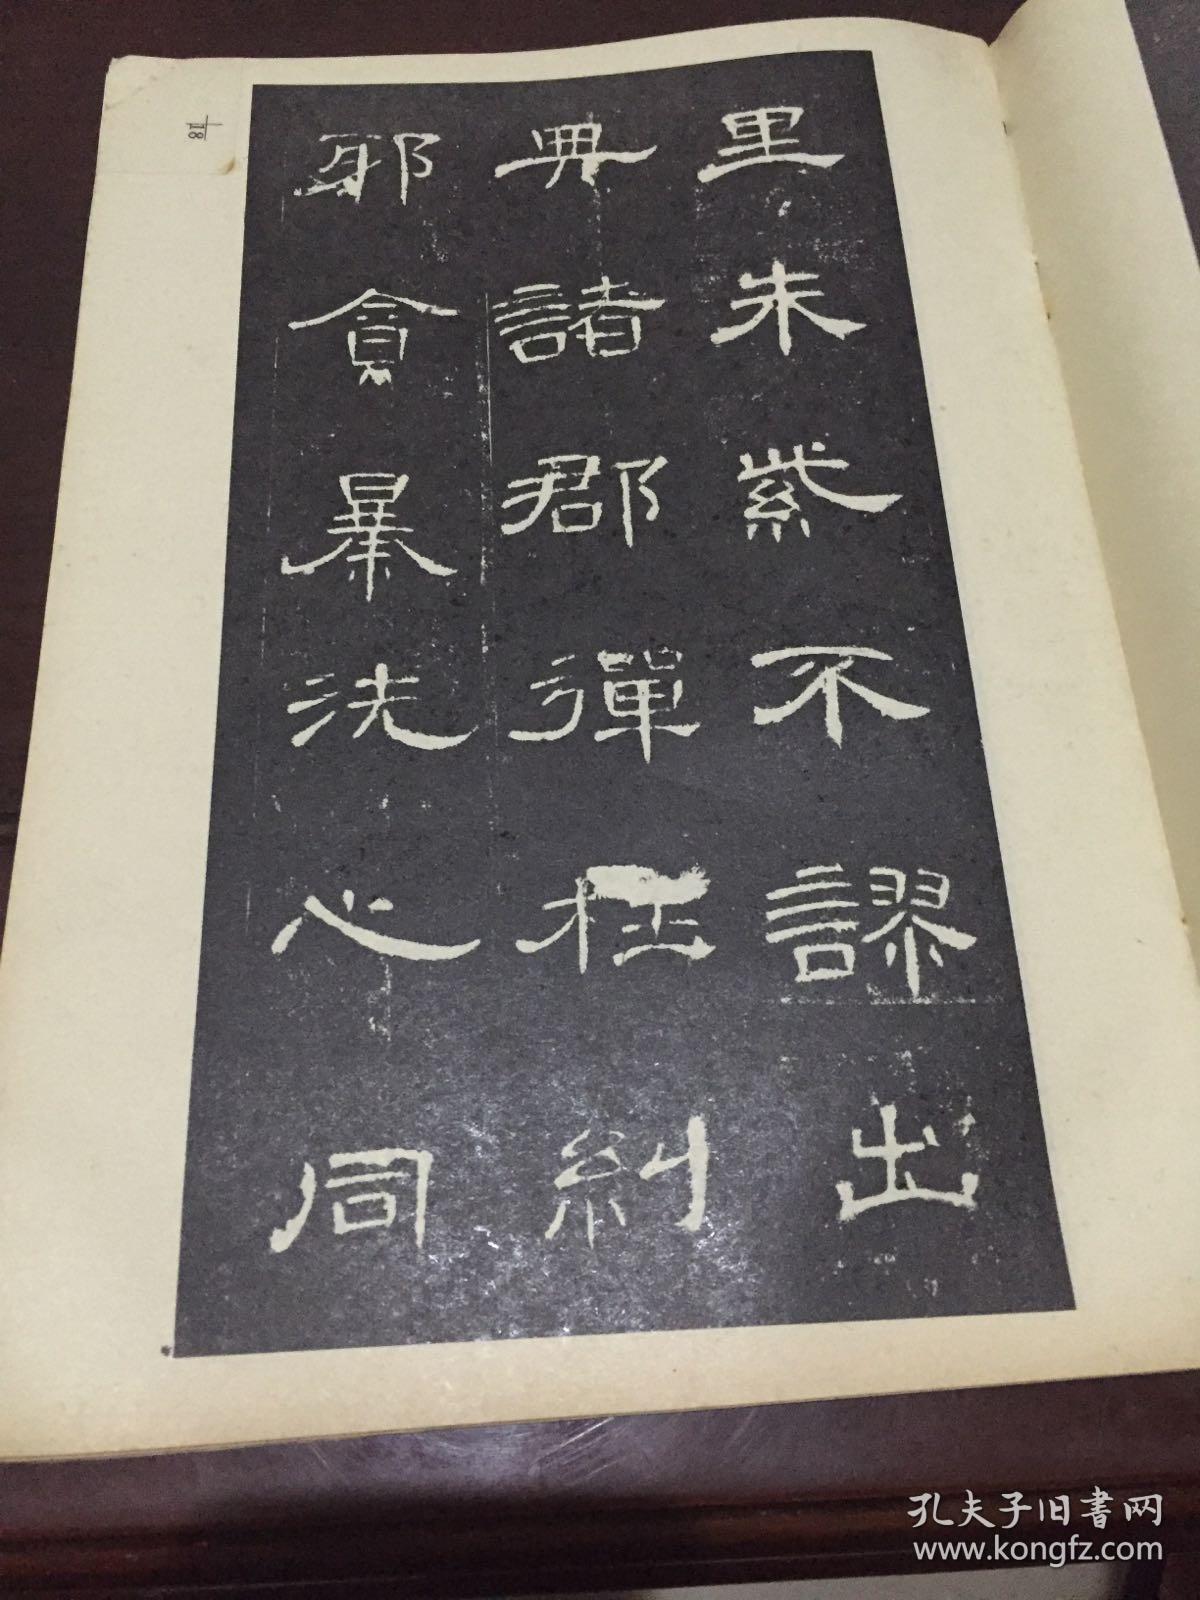 里朱紫不謬出
典諸郡彈枉糾
邪貪暴洗心同
18
孔夫子旧書网
www.kongfz.com